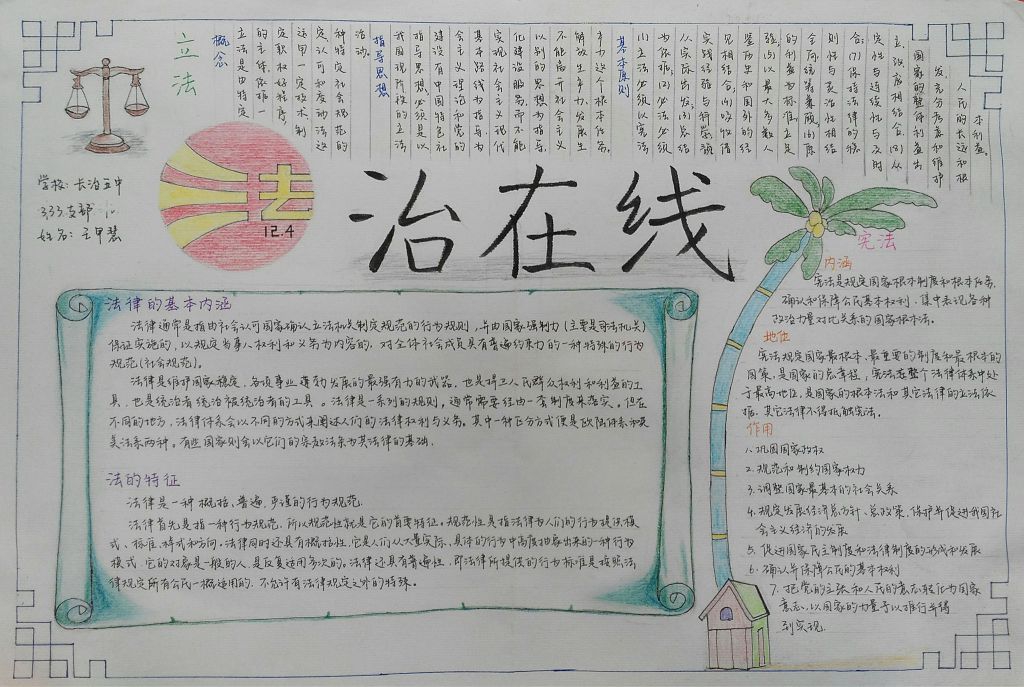 立法
概念
立法是由特定
的主体,依据一
定职权好程序,
运用一定技术制
定认可和变动法这
种特定社会规范的
活动。
指导思想
我国现阶段的立法
指导思想,必须是以
建设有中国特色社
会主义理论和党的
基本路线为指导,为
实现社会主义现代
化建设服务,而不能
以别的思想为指导,
不能离开社会主义
解放生产力,发展生
产力这个根本任务。
基本原则
(1)立法必须以宪法
为依据;(2)必须
从实际出发;(3)总结
实践经验与科学预
见相结合;(4)吸收借
鉴历史和国外的经
验;(5)以最大多数人
的利益为标准,立足
全局,统筹兼顾;(6)原
则性与灵活性结
合;(7)保持法律的稳
定性与连续性与及时
立、改、废相结合;(8)从
国家的整体利益出
发,充分考虑和维护
人民的长远和根
本利益。
学校:长治五中
333支部
姓名:王甲慧
法
12.4
治在线
法律的基本内涵
法律通常是指由社会认可国家确认立法机关制定规范的行为规则,并由国家强制力(主要是司法机关)
保证实施的,以规定当事人权利和义务为内容的,对全体社会成员具有普遍约束力的一种特殊的行为
规范(社会规范)。
法律是维护国家稳定,各项事业蓬勃发展的最强有力的武器,也是捍卫人民群众权利和利益的工
具,也是统治者统治被统治者的工具。法律是一系列的规则,通常需要经由一套制度来落实。但在
不同的地方,法律体系会以不同的方式来阐述人们的法律权利与义务。其中一种区分方式便是欧陆体系和英
美法系两种。有些国家则会以它们的宗教法条为其法律的基础。
法的特征
法律是一种概括、普遍、严谨的行为规范.
法律首先是指一种行为规范,所以规范性就是它的首要特征。规范性是指法律为人们的行为提供模
式、标准、样式和方向。法律同时还具有概括性,它是人们从大量实际、具体的行为中高度抽象出来的一种行为
模式,它的对象是一般的人,是反复适用多次的。法律还具有普遍性,即法律所提供的行为标准是按照法
律规定所有公民一概适用的,不允许有法律规定之外的特殊。
宪法
内涵
宪法是规定国家根本制度和根本任务,
确认和保障公民基本权利,集中表现各种
政治力量对比关系的国家根本法。
地位
宪法规定国家最根本、最重要的制度和最根本的
国策,是国家的总章程,宪法在整个法律体系中处
于最高地位,是国家的根本法和其它法律的立法依
据,其它法律不得抵触宪法。
作用
1.巩固国家政权
2.规范和制约国家权力
3.调整国家最基本的社会关系
4.规定发展经济总方针、总政策,保护并促进我国社
会主义经济的发展
5.促进国家民主制度和法律制度的形成和发展
6.确认并保障公民的基本权利
7.把党的主张和人民的意志转化为国家
意志,以国家的力量予以推行并得
到实现.